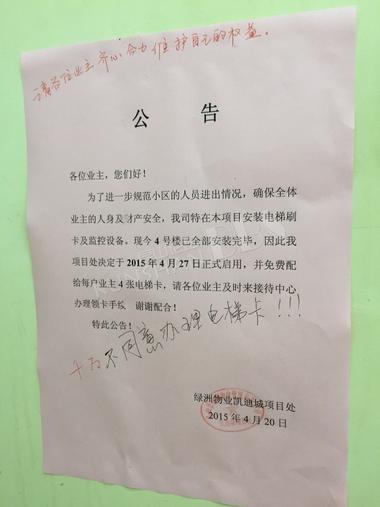 请各位业主齐心合力维护自己的权益。
公 告
各位业主，您们好！
为了进一步规范小区的人员进出情况，确保全体
业主的人身及财产安全，我司特在本项目安装电梯刷
卡及监控设备。现今 4 号楼已全部安装完毕，因此我
项目处决定于 2015 年 4 月 27 日正式启用，并免费配
给每户业主 4 张电梯卡，请各位业主及时来接待中心
办理领卡手续，谢谢配合！
特此公告！
千万不同意办理电梯卡！！！
绿洲物业凯迪城项目处
2015 年 4 月 20 日